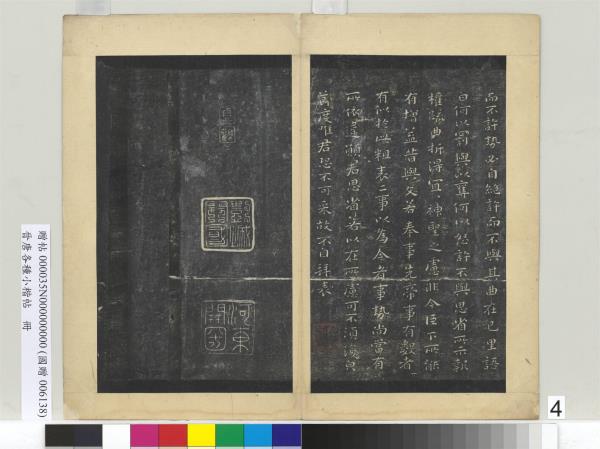 而不許勢必自絕許而不與其曲在己里語
曰何以罰與以奪何以怒許不與思省所示報
權疏曲折得宜宜神聖之慮非今臣下所能
有增益昔與文若奉事先帝事有數者
有似於此粗表二事以為今者事勢尚當有
所依違願君思省若以在所慮可不須復
度唯君恐不可采故不自拜表
河東
贈帖 000035N000000000 (國贈 006138)
晉唐各種小楷帖 冊
4